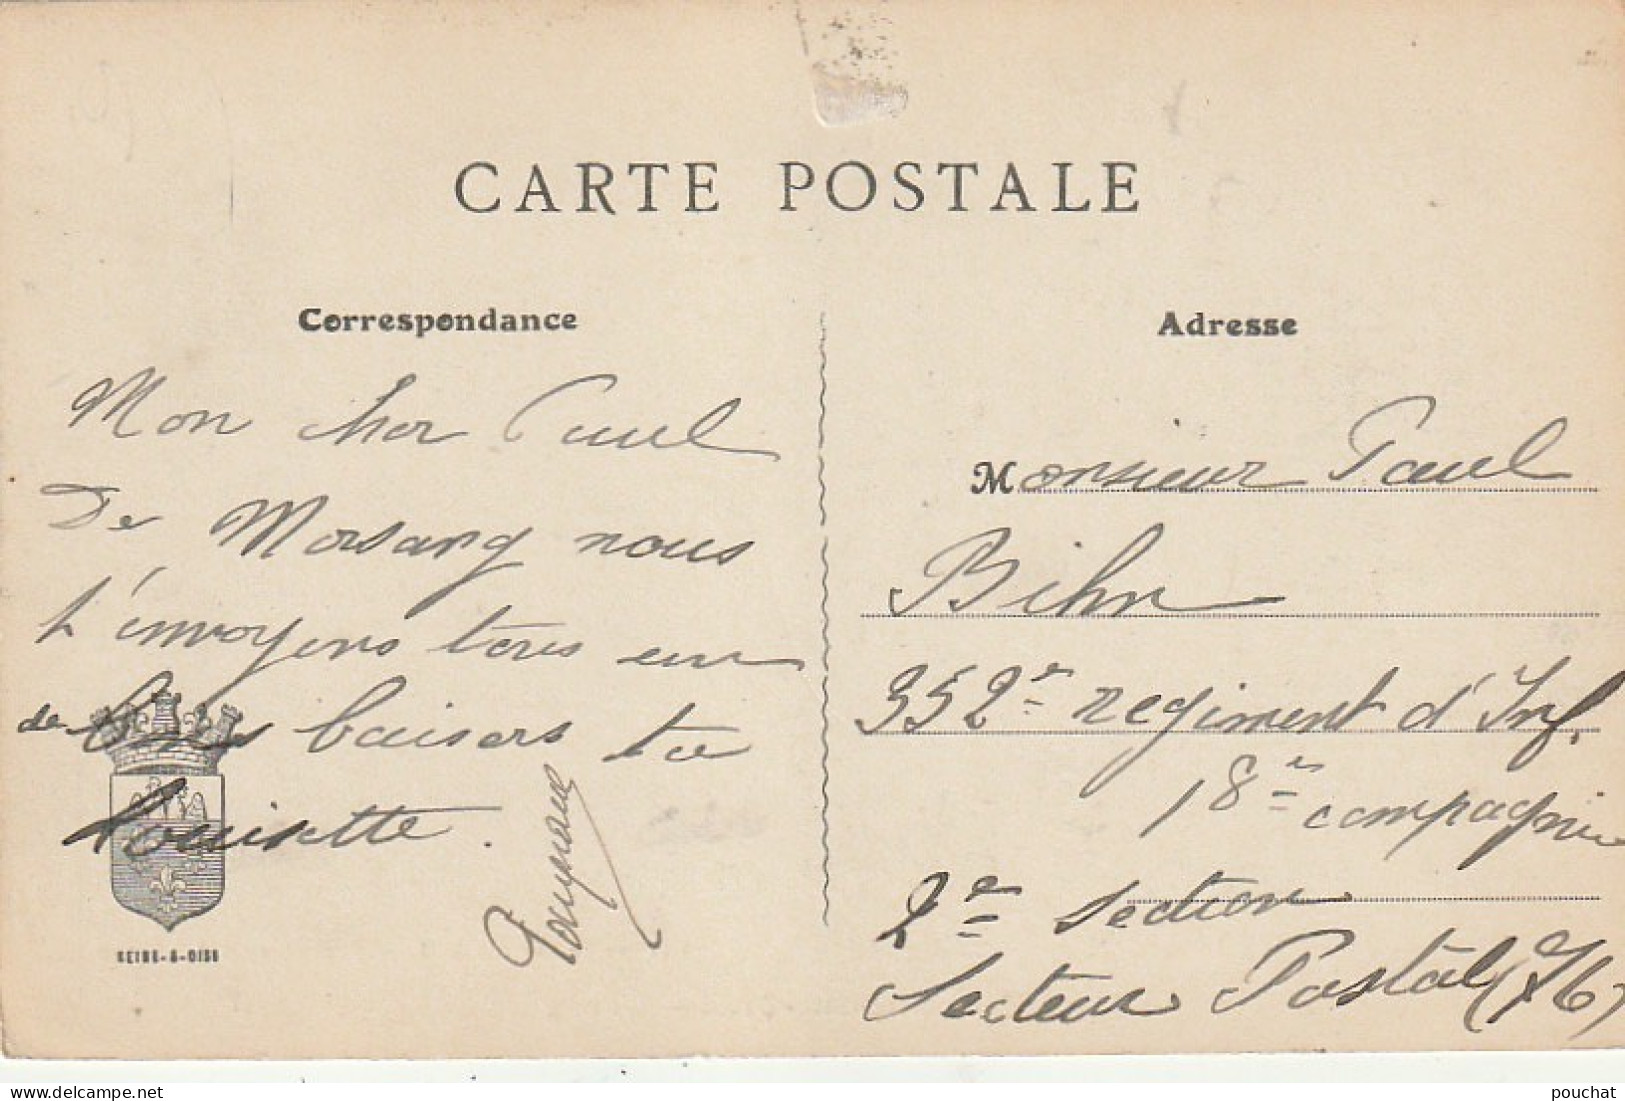 CARTE POSTALE
Correspondance
Mon cher Paul
De Morsang nous
t'envoyons tous un
de bons baisers ta
Louisette.
SEINE-&-OISE
Adresse
Monsieur Paul
Bihn
352e regiment d'Inf.
18e compagnie
2e section
Secteur Postal (76)
pouchat